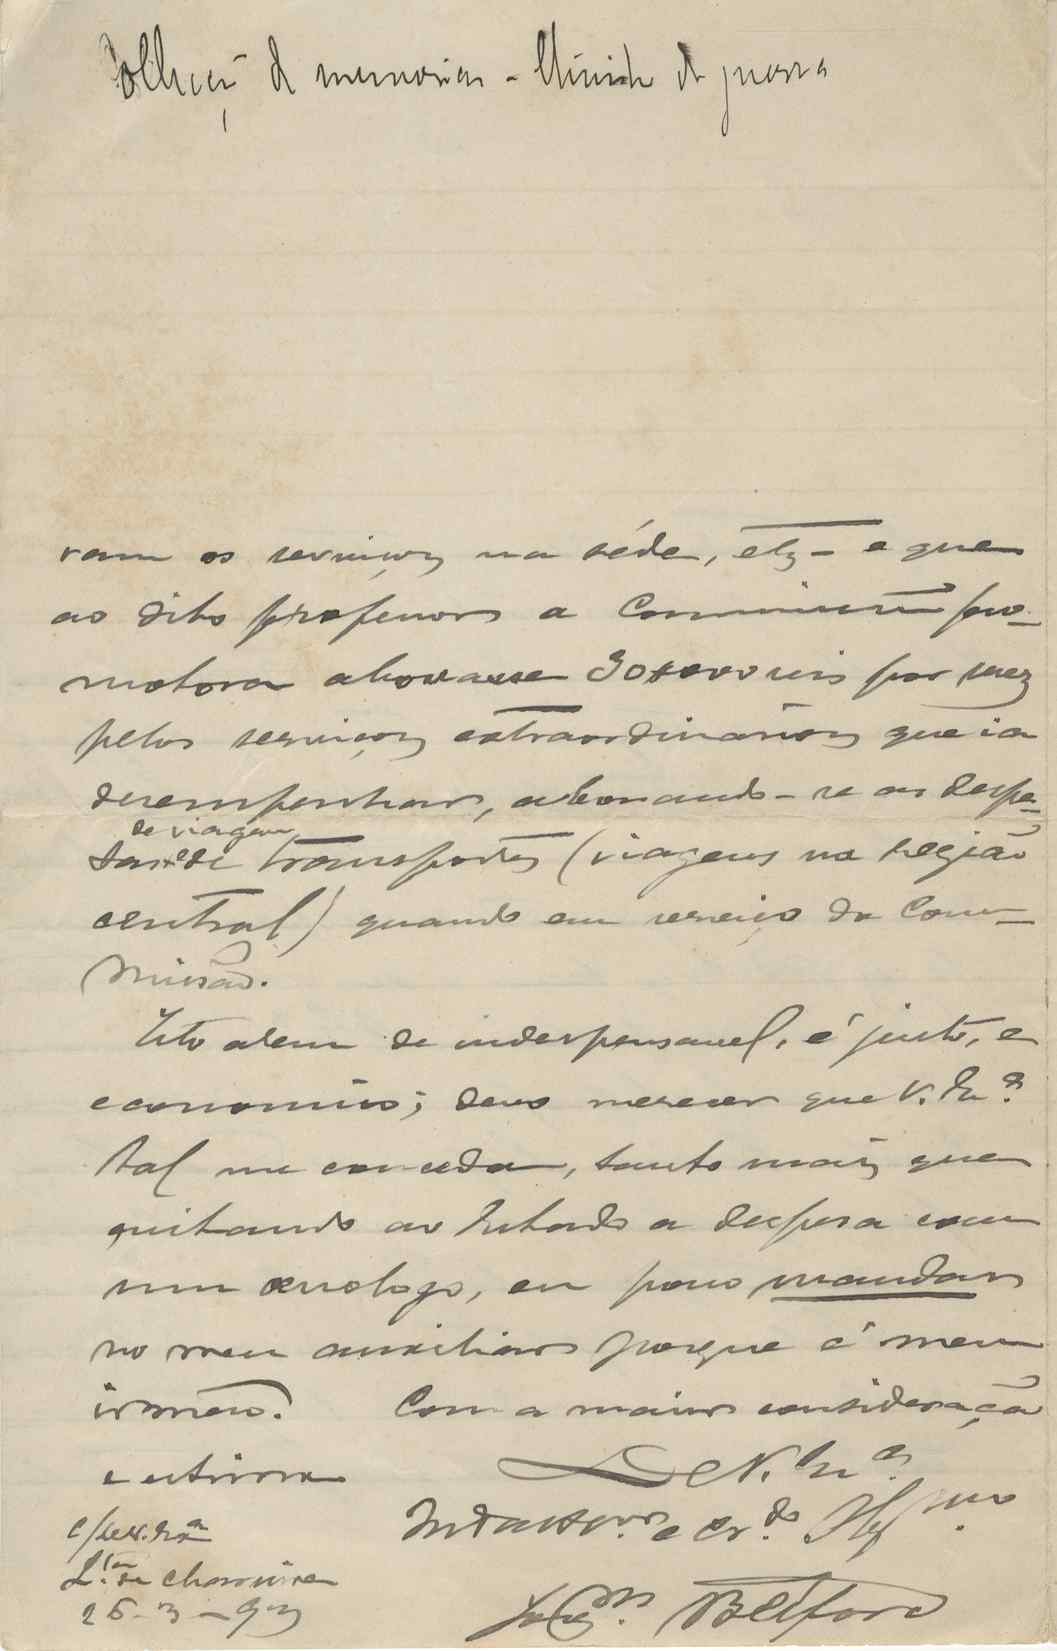 Collecção de memorias - Ministro da guerra
ram os serviços na séde, etc - e que
ao dito professor a Commissão pro-
motora abonasse 30$000 reis por mez
pelos serviços extraordinarios que ia
desempenhar, abonando-se as despe-
de viagem
sas e de transportes (viagens na região
central) quando em serviço da Com-
missão.
Isto alem de indespensavel, é justo, e
economico; devo merecer que V. Exª
tal me conceda, tanto mais que
quitando ao Estado a despesa com
um œnologo, eu posso mandar
no meu auxiliar porque é meu
irmão. Com a maior consideração
e estima
De V. Exª
c/ de V. Exª
Qta de Charniva
25-3-93